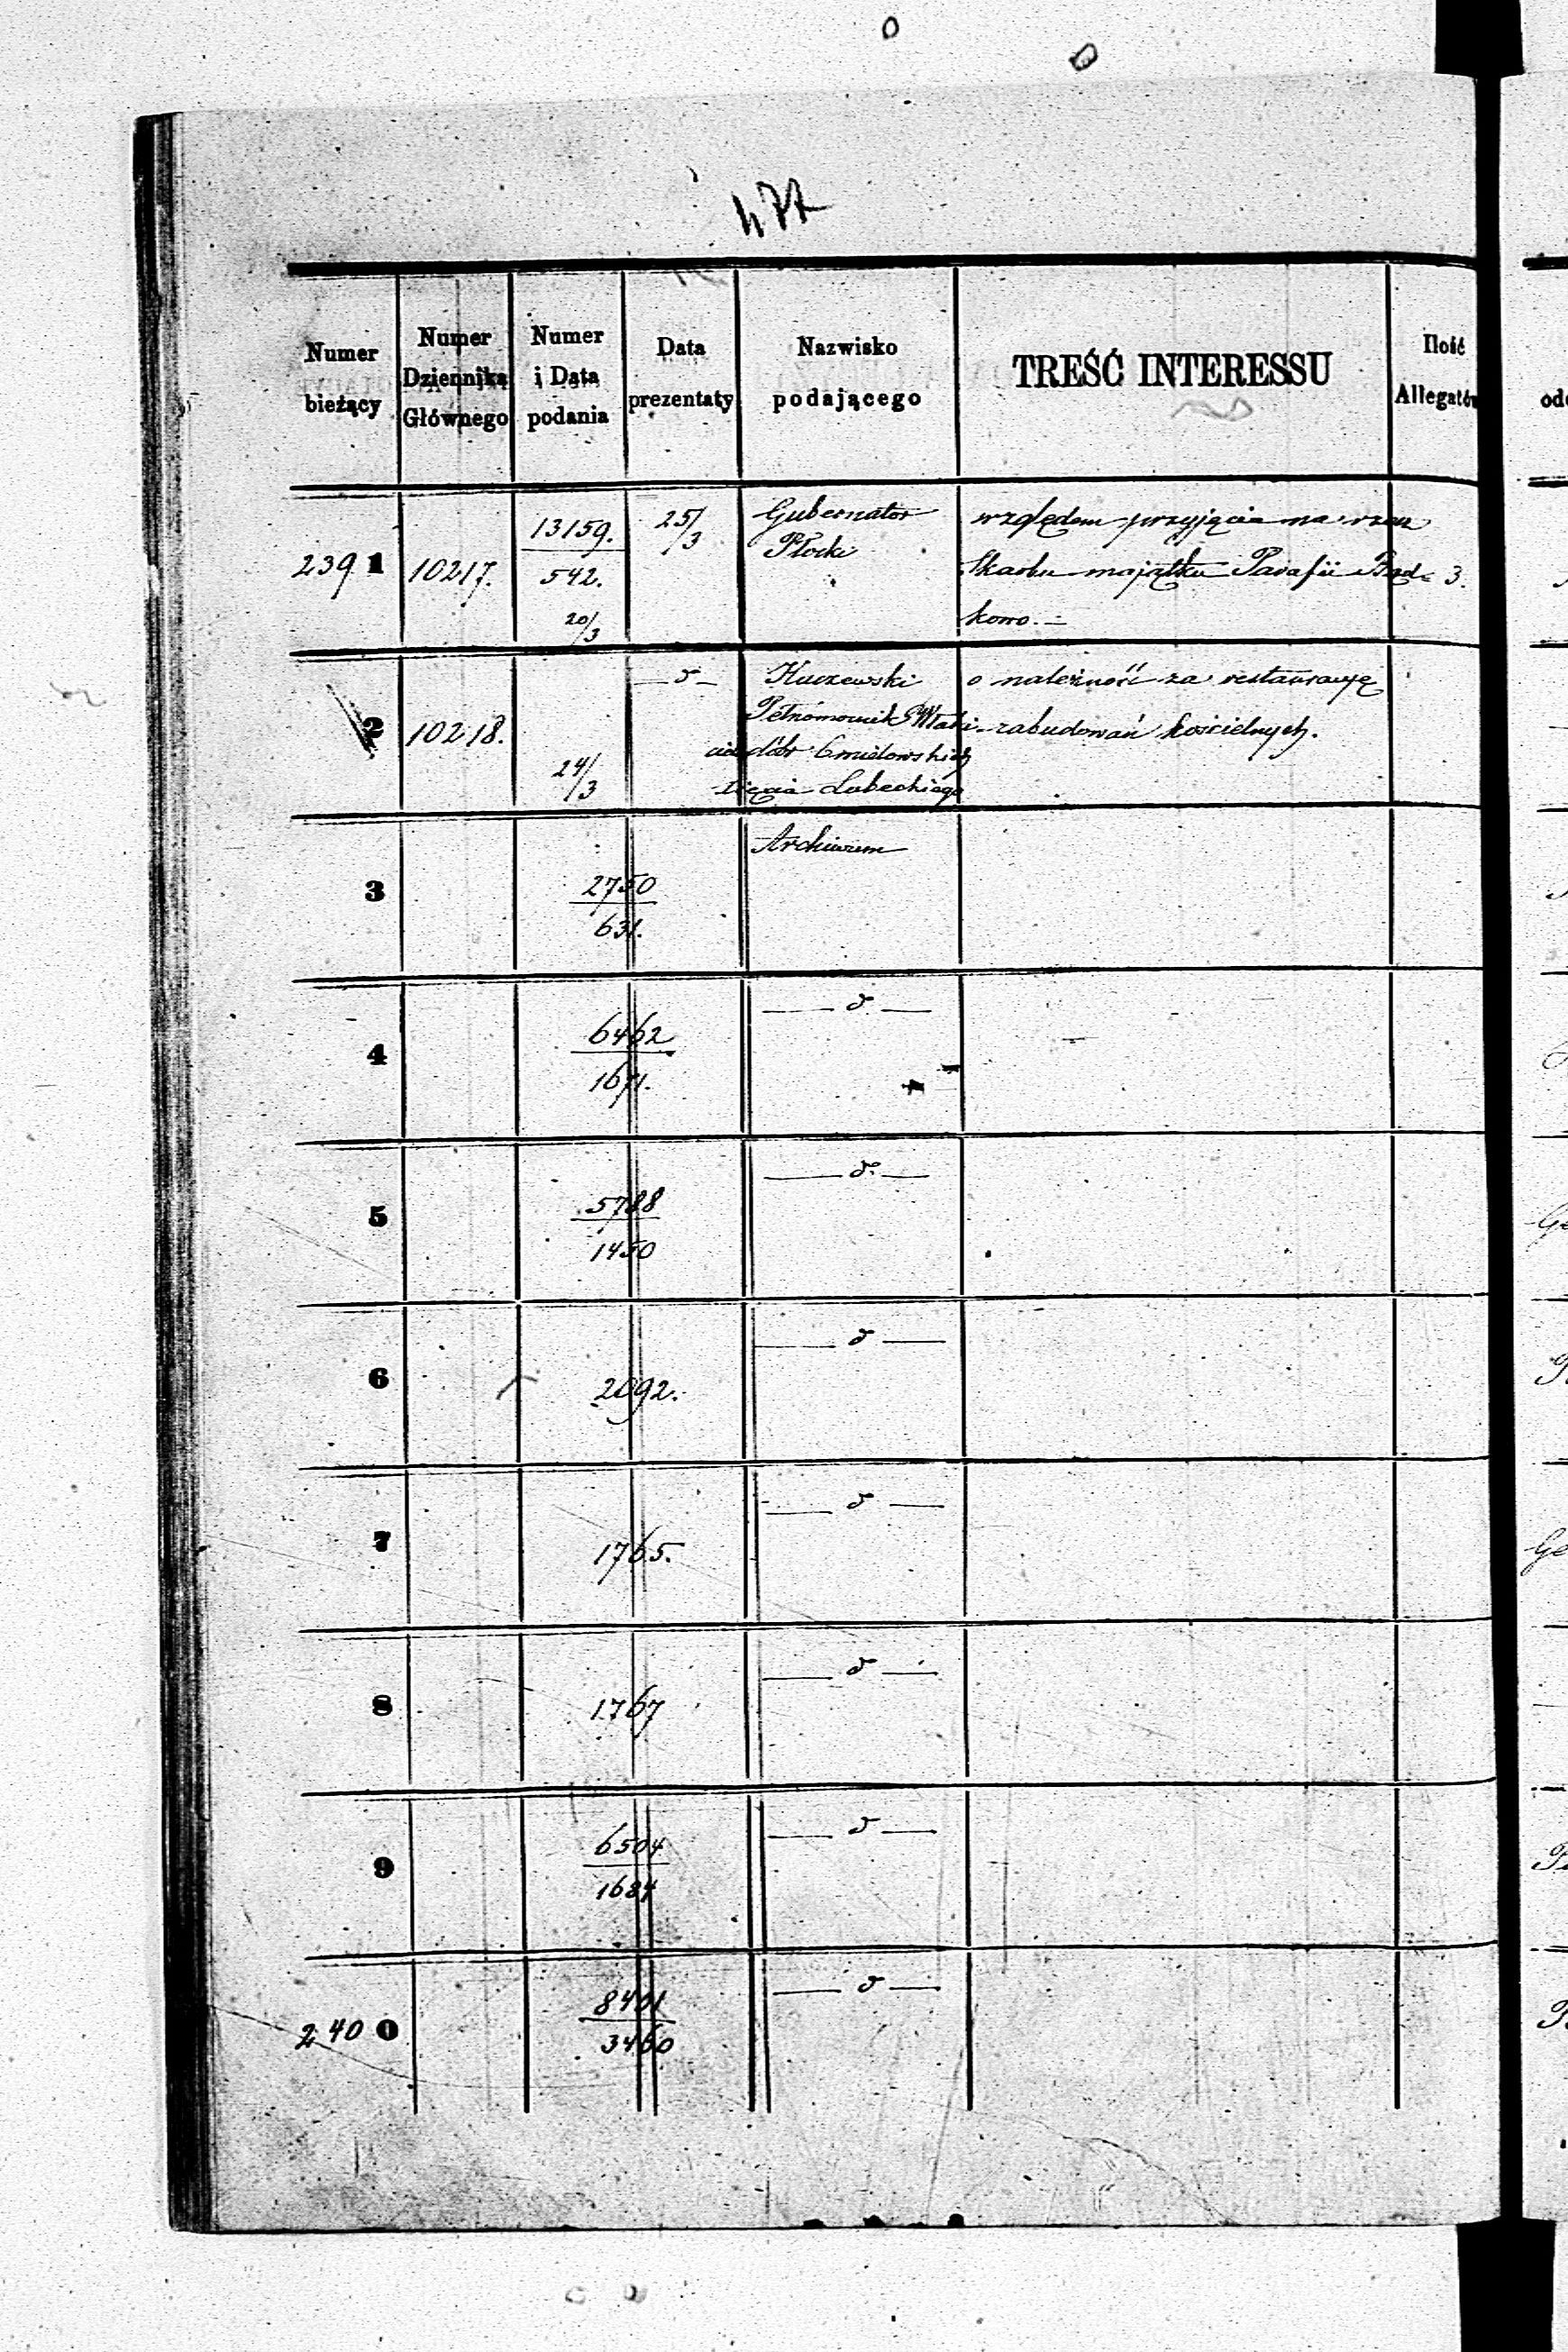 Numer bieżący
Numer Dziennika Głównego
Numer i Data podania
Data prezentaty
Nazwisko podającego
TREŚĆ INTERESSU
Ilość Allegatów
2391 10217. 13159. 25/3 Gubernator względem przyjęcia na rzecz
542. Płocki Skarbu majątku Parafii 3.
20/3 kowo.—
2 10218. —d— Kuczewski o należność za restauracyę
Pełnomocnik Właści- zabudowań kościelnych.
24/3 ciela dóbr Ćmielowskich
Xięcia Lubeckiego
3 2750 Archiwum
631.
4 6462 — d. —
1671.
5 5788 — d. —
1450
6 2092. — d —
7 1765. — d —
8 1767 — d —
9 6504 — d —
1684
2400 8401 — d —
3460